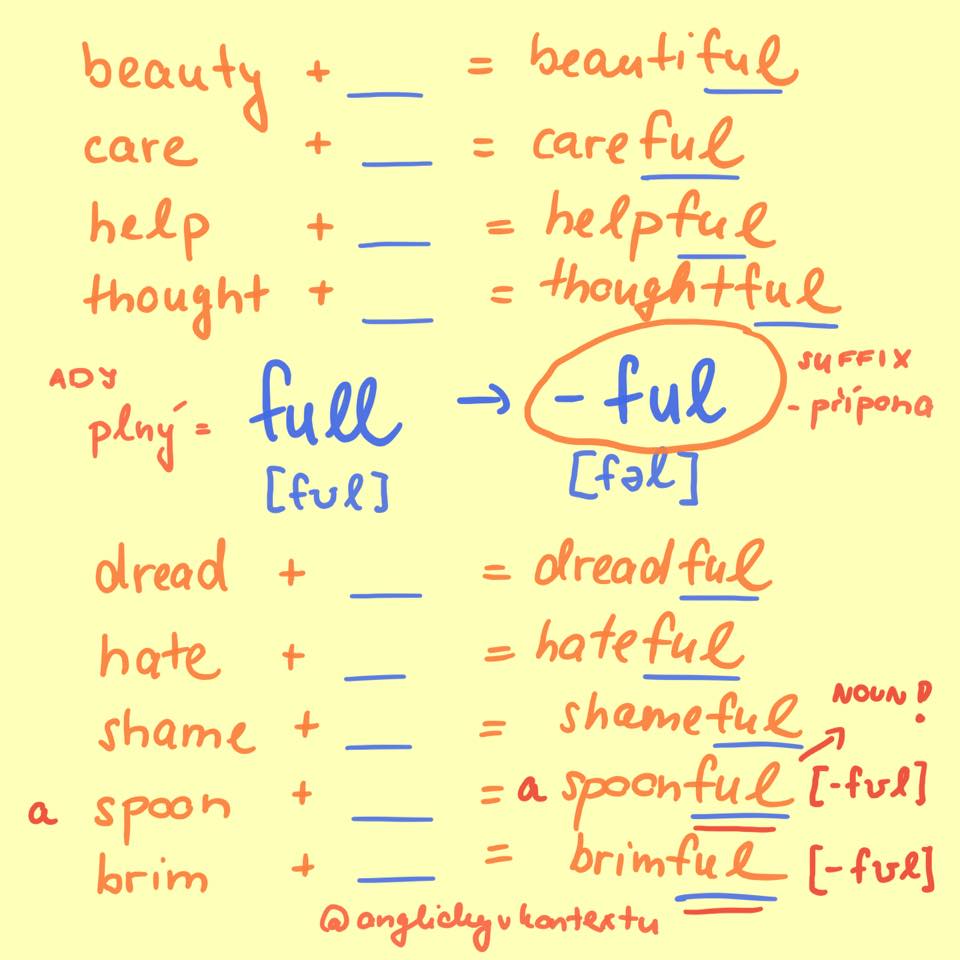 beauty + ___ = beautiful
care + ___ = careful
help + ___ = helpful
thought + ___ = thoughtful
SUFFIX
- přípona
ADJ
plný = full → -ful
[fʊl] [fəl]
dread + ___ = dreadful
hate + ___ = hateful
NOUN!
shame + ___ = shameful
a spoon + ___ = a spoonful [-fʊl]
brim + ___ = brimful [-fʊl]
@anglickyvkontextu